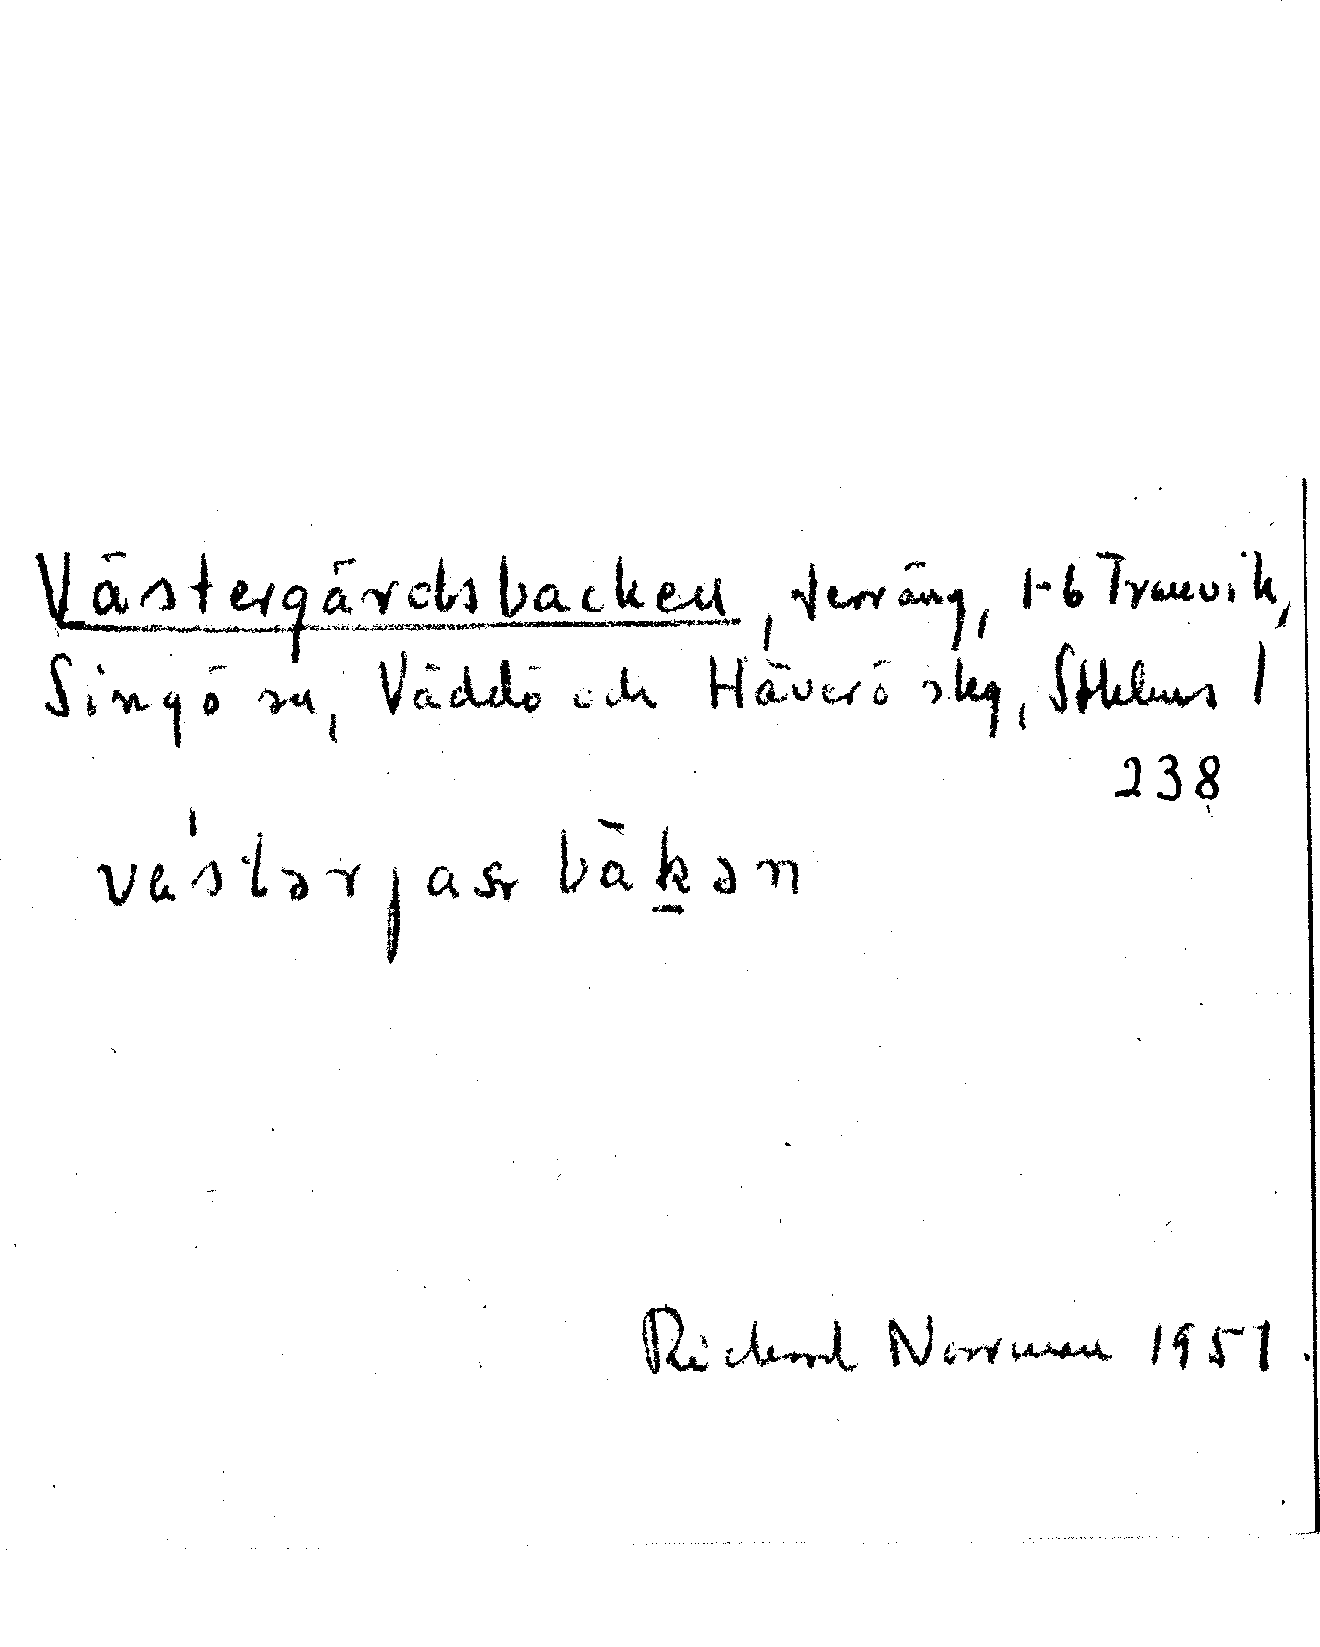 Västergärdsbacken, terräng, 1-6 Tranvik,
Singö sn, Väddö och Häverö skg, Sthlms l
238
västərjas bäkən
Richard Norrman 1951.